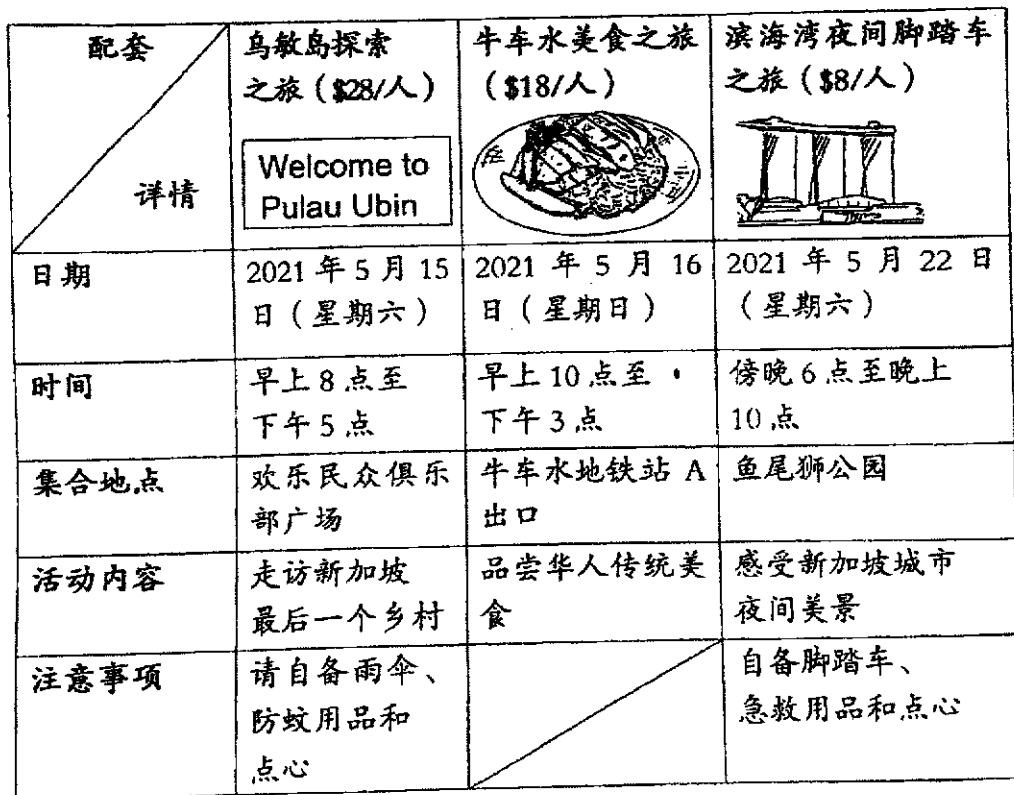 配套
详情
乌敏岛探索
之旅（$28/人）
Welcome to
Pulau Ubin
牛车水美食之旅
（$18/人）
滨海湾夜间脚踏车
之旅（$8/人）
日期
2021 年 5 月 15
日（星期六）
2021 年 5 月 16
日（星期日）
2021 年 5 月 22 日
（星期六）
时间
早上 8 点至
下午 5 点
早上 10 点至
下午 3 点
傍晚 6 点至晚上
10 点
集合地点
欢乐民众俱乐
部广场
牛车水地铁站 A
出口
鱼尾狮公园
活动内容
走访新加坡
最后一个乡村
品尝华人传统美
食
感受新加坡城市
夜间美景
注意事项
请自备雨伞、
防蚊用品和
点心
自备脚踏车、
急救用品和点心